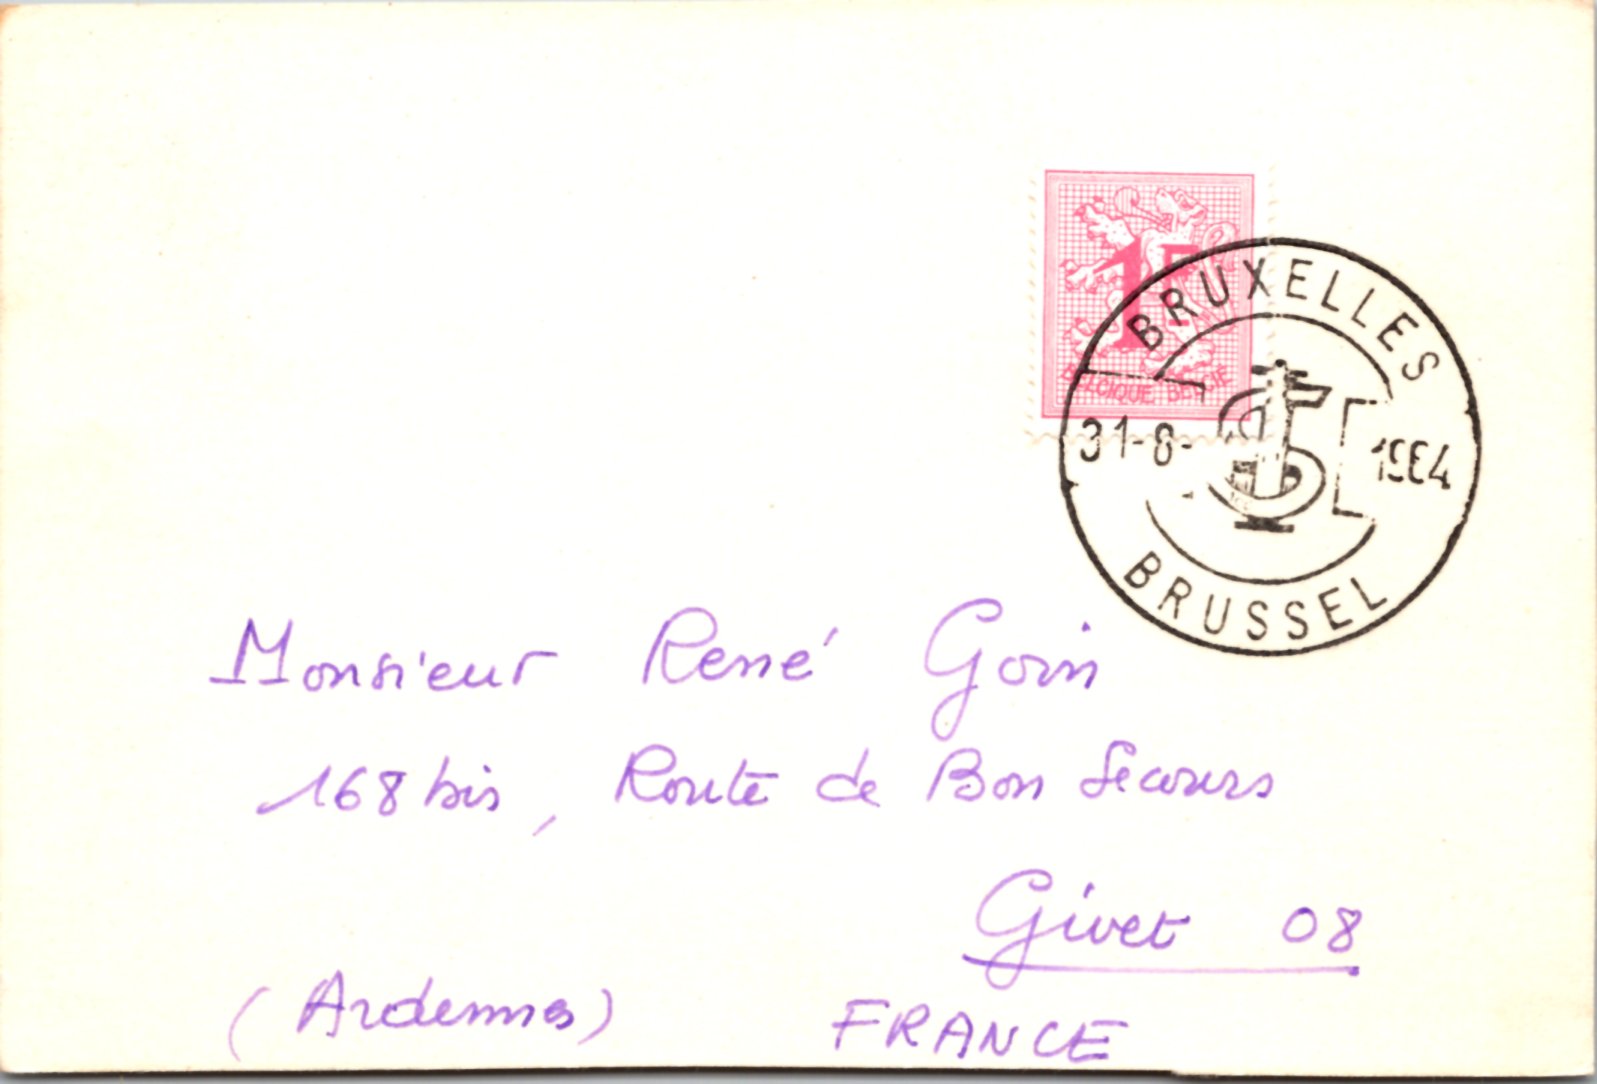 1F
BELGIQUE BELGIË
BRUXELLES
31-8-1964
BRUSSEL
Monsieur René Goin
168 bis, Route de Bon Secours
Givet 08
(Ardennes) FRANCE